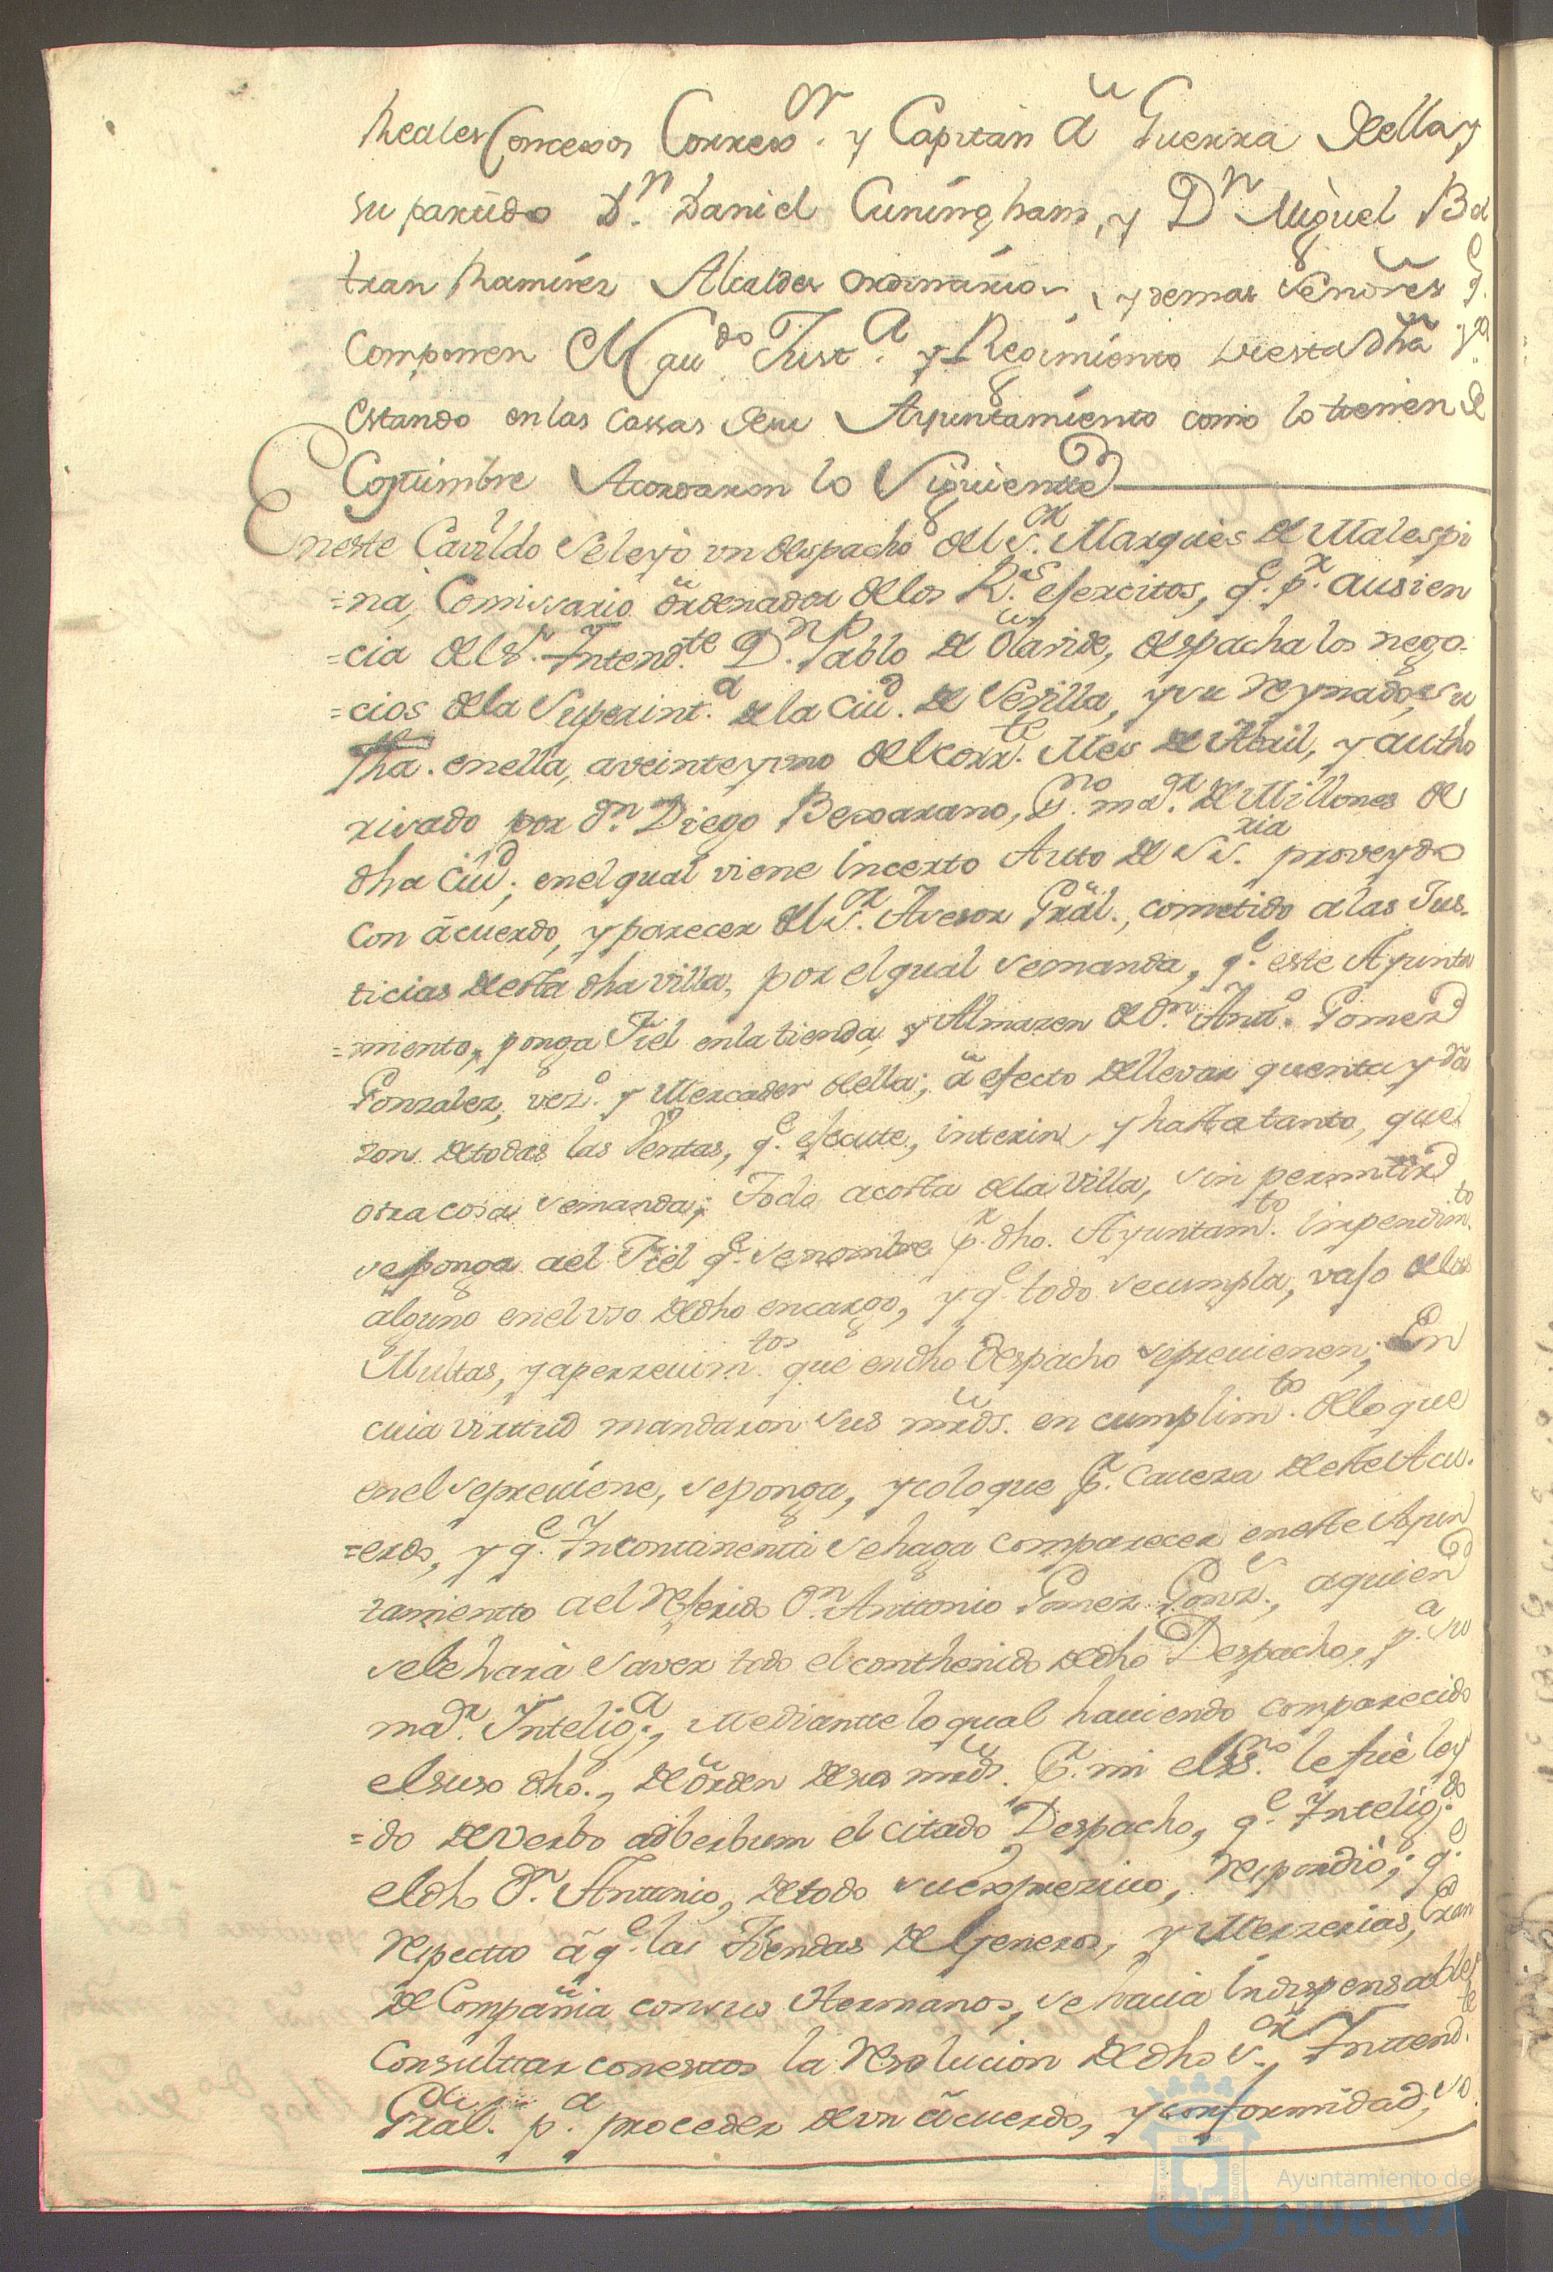 Reales Concexos Correxor. y Capitan â Guerra della y
su partido Dn. Daniel Cuningham, y Dn Miguel Bel
tran Ramirez Alcaldes ordinarios, y demas Señores q.
Componen el Cau.do Just.a y Regimiento de esta dha
estando en las cassas de su Ayuntamiento como lo tienen de
Costumbre Acordaron lo Siguiente
En este Cavildo se leyò un despacho del Sr. Marques de Malespi
=na, Comissario ôrdenador de los Rs. efercitos, q.e p.r ausien
=cia del Sr. Intend.te Dn. Pablo de Olavide, despacha los nego-
=cios de la Superint.a de la Ciud. de Sevilla, y su reynado, su
fha. en ella, a veinte y uno del corr.te Mes de Abril, y autho
rizado por dn. Diego Bexarano, Ss.no ma.or de Millones de
dha Ciud; en el qual viene incerto Auto de S S.ria proveydo
con âcuerdo, y parecer del Sr. Asesor Gräl., cometido a las Jus-
ticias de esta dha villa, por el qual se manda, q.e este Ayunta
=miento, ponga Fiel en la tienda, y Almazen de Dn. Antt.o Gomez
Gonzalez, vez.o y Mercader de ella; â efecto de llevar quenta y Ra
zon de todas las Ventas, q.e efecute, interin, y hasta tanto, que
otra cosa se manda; Todo a costa de la Villa, sin permitir
se ponga a el Fiel q.e se nombre p.r dho. Ayuntam.to impedim.to
alguno en el uso de dho encargo, y q.e todo se cumpla, vajo de las
Multas, y aperzevim.tos que en dho despacho se previenen; En
cuia virttud mandaron sus mrds. en cumplim.to de lo que
en el se previene, se ponga, y coloque p.r Caveza de este Acu.
=erdo, y q.e Incontinenti se haga comparecer en este Ayun
tamientto a el referido Dn. Anttonio Gomez Gonz.z, a quien
se le harà saver todo el conthenido de dho Despacho, p.a su
ma.r Intelig.a, Mediantte lo qual haviendo comparecido
el suso dho., de ôrden de sus mrds. P.r mi el Ss.no le fuè ley
=do de verbo adberbum el citado Despacho, q.e Intelig.do
el dho Dn. Anttonio, de todo su exprezivo, respondiò; q.e
respectto â q.e las Tiendas de Generos, y Merzerias, Eran
de Compañia con sus Hermanos, se hacia indispensable
Consulttar con esttos la resolucion de dho Sr. Inttend.te
Gräl. p.a proceder de un âcuerdo, y conformidad, so.
Ayuntamiento de
HUELVA